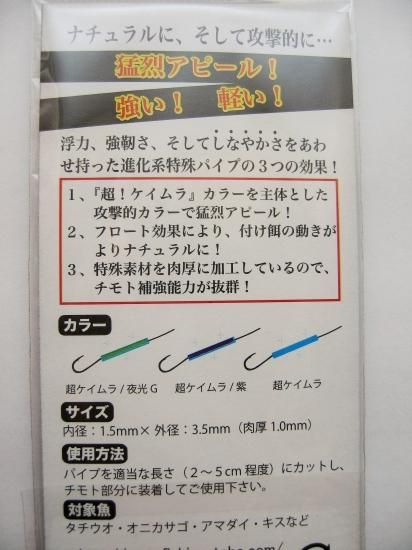 ナチュラルに、そして攻撃的に…
猛烈アピール！
強い！ 軽い！
浮力、強靭さ、そしてしなやかさをあわ
せ持った進化系特殊パイプの３つの効果！
１、『超！ケイムラ』カラーを主体とした
攻撃的カラーで猛烈アピール！
２、フロート効果により、付け餌の動きが
よりナチュラルに！
３、特殊素材を肉厚に加工しているので、
チモト補強能力が抜群！
カラー
超ケイムラ / 夜光G 超ケイムラ / 紫 超ケイムラ
サイズ
内径：1.5mm× 外径：3.5mm（肉厚 1.0mm）
使用方法
パイプを適当な長さ（２～５cm 程度）にカットし、
チモト部分に装着してご使用下さい。
対象魚
タチウオ・オニカサゴ・アマダイ・キスなど